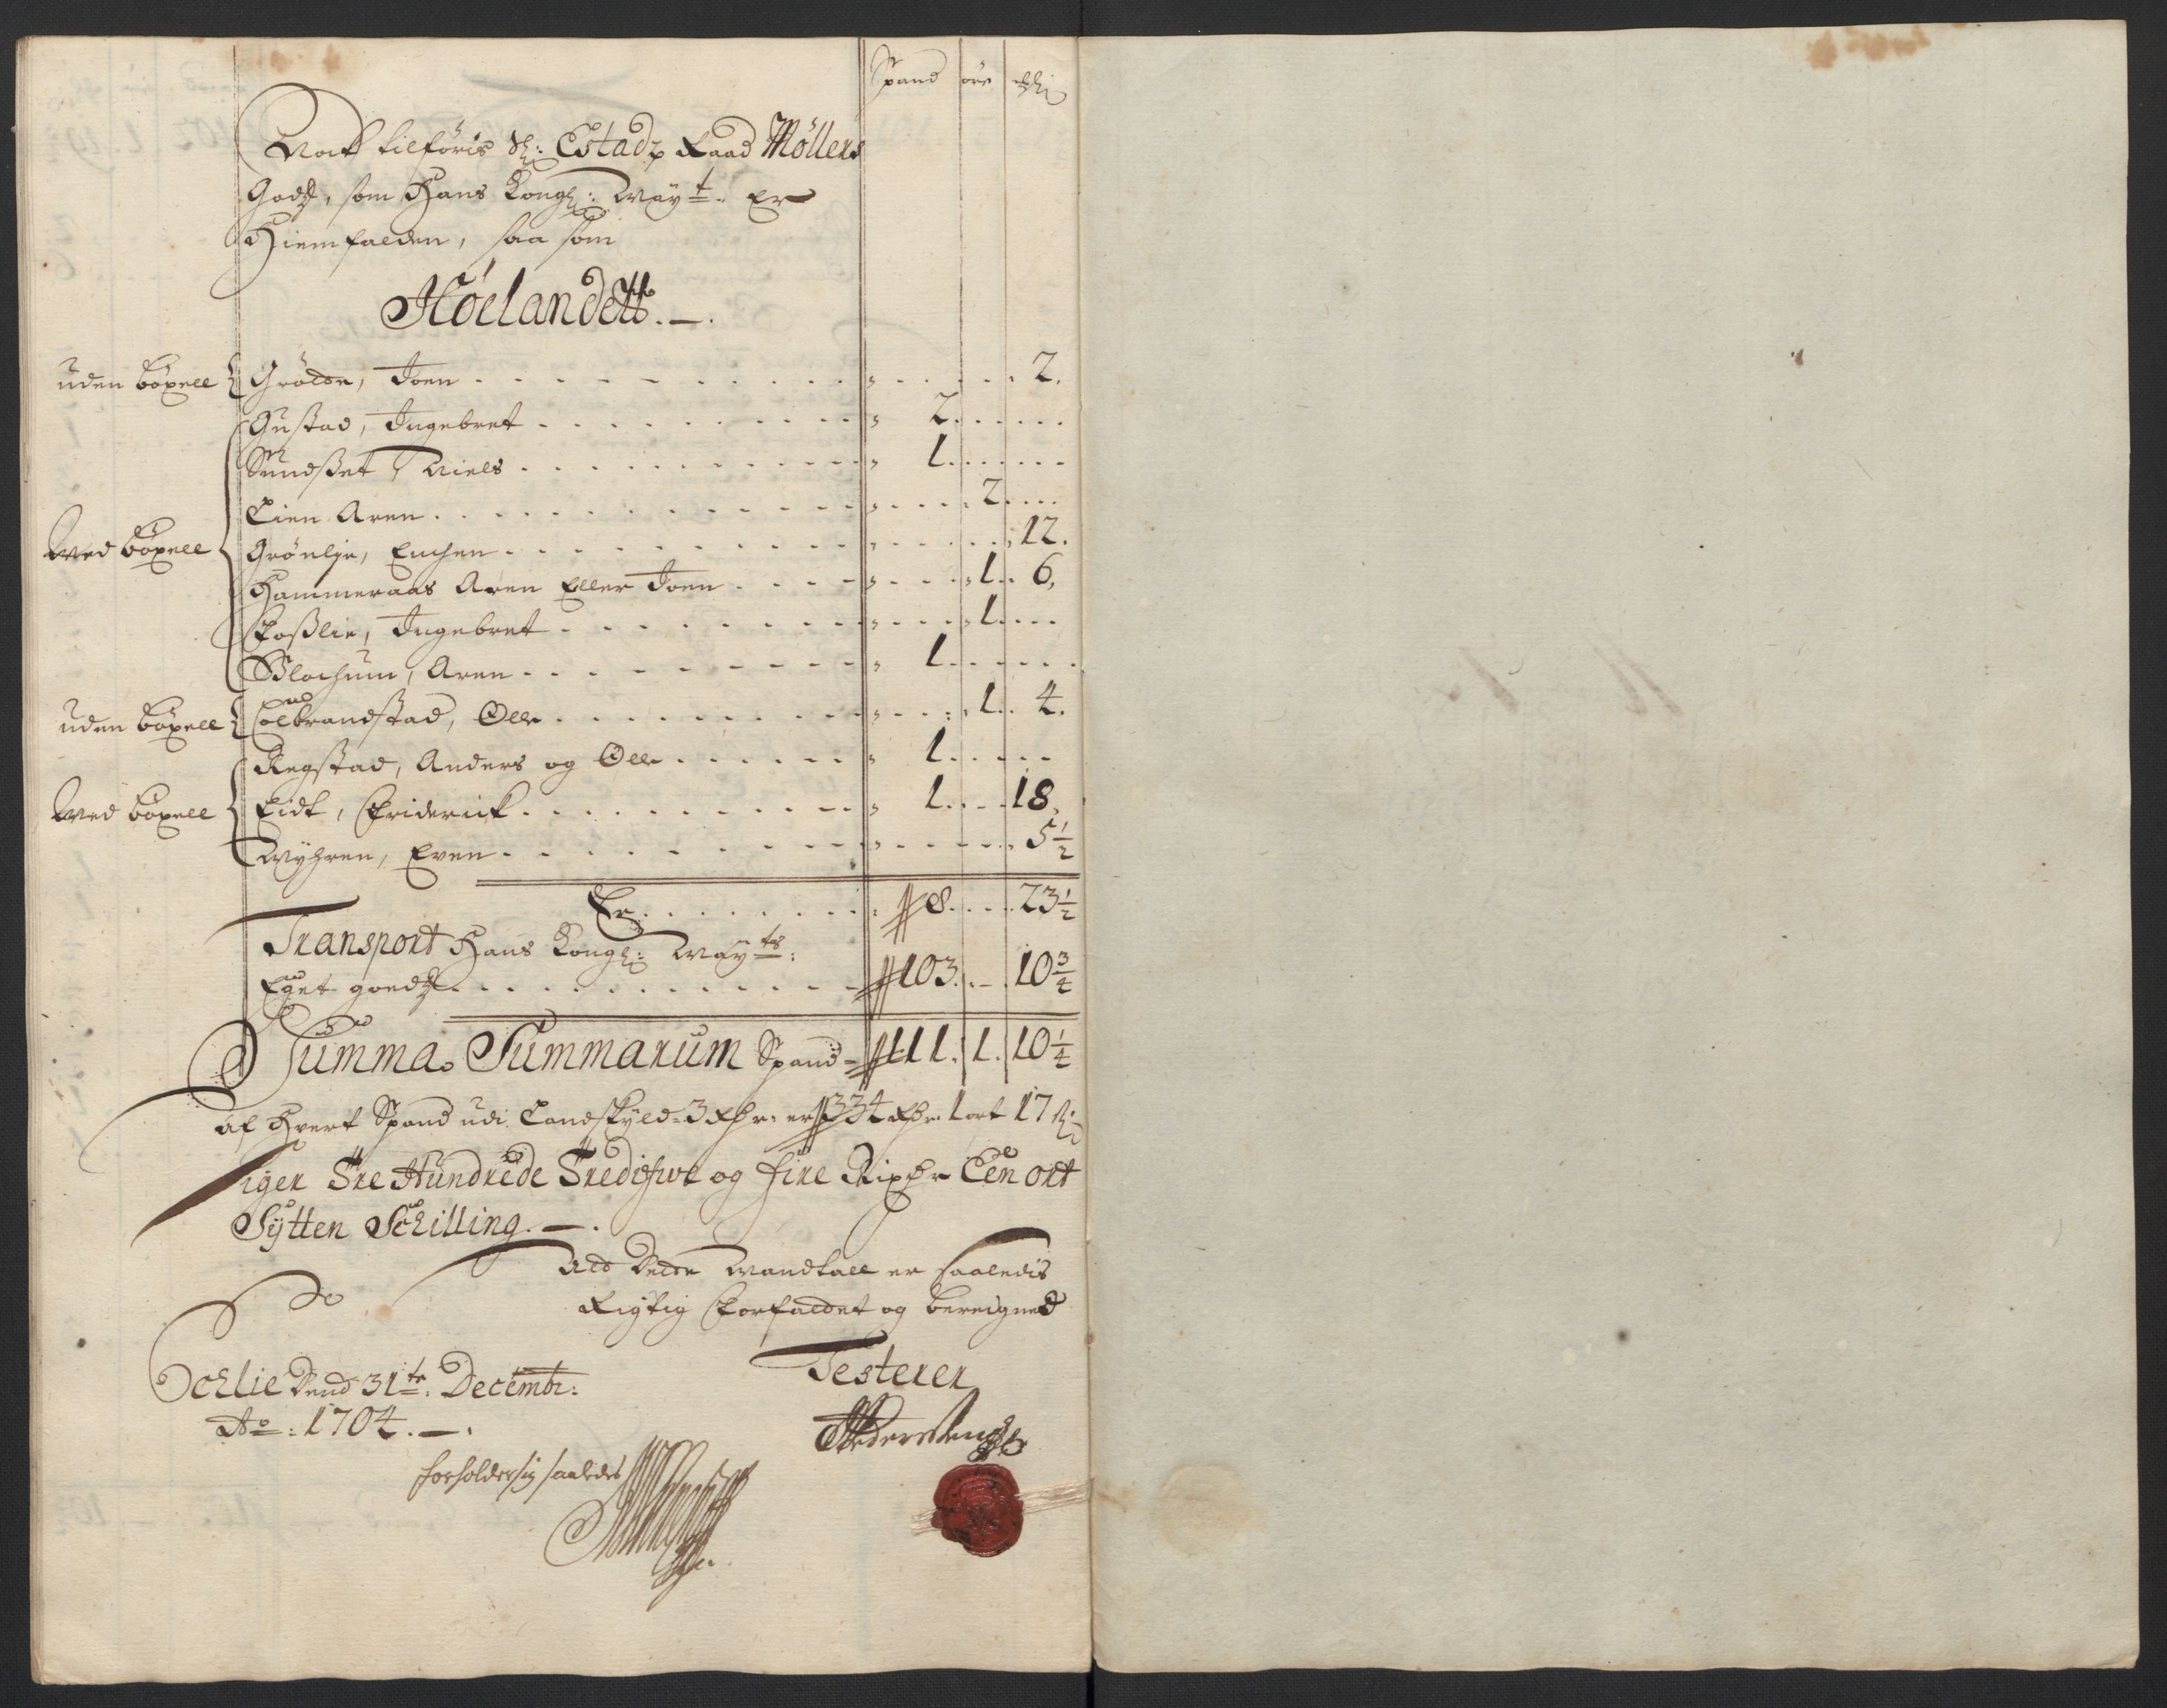 Spand øre
Noch tilføris Sl: Estadz Raad Møllers
Godz, som Hans Kongl: May:t Er
Hiemfalden, saa som
Høelandett. —.
uden böxell Grölde, Joen 2.
Gustad, Ingebret 2
Sundset, Niels 1
Lien Aren 2
Med böxell Grönlje, Enchen 12.
Hammeraas Aren Eller Joen 1. 6.
Skoßlie, Ingebret 1
Blochum, Aren 1
uden böxell Colbrandstad, Olle 1. 4.
Regstad, Anders og Olle 1
Med böxell Eidt, Friderick 1 18.
Myhren, Even 5 1/2
Er 8. 23 1/2
Transport Hans Kongl: May:ts
Eget goedz 103. 10 3/4
Summa Summarum Spand 111. 1. 10 1/4
af Hvert Spand udi Landskyld 3 Rdr: er 334 Rdr 1 ort 17 s
Siger Tre Hundrede Tredisve og fire Rixdr Een ort
Sytten Schilling. —.
Att Dette Mandtall er saaledis
Rigtig Forfattet og beregned
Testerer
Dend 31te: Decembr:
Ao: 1704. —.
forholder sig saaledes